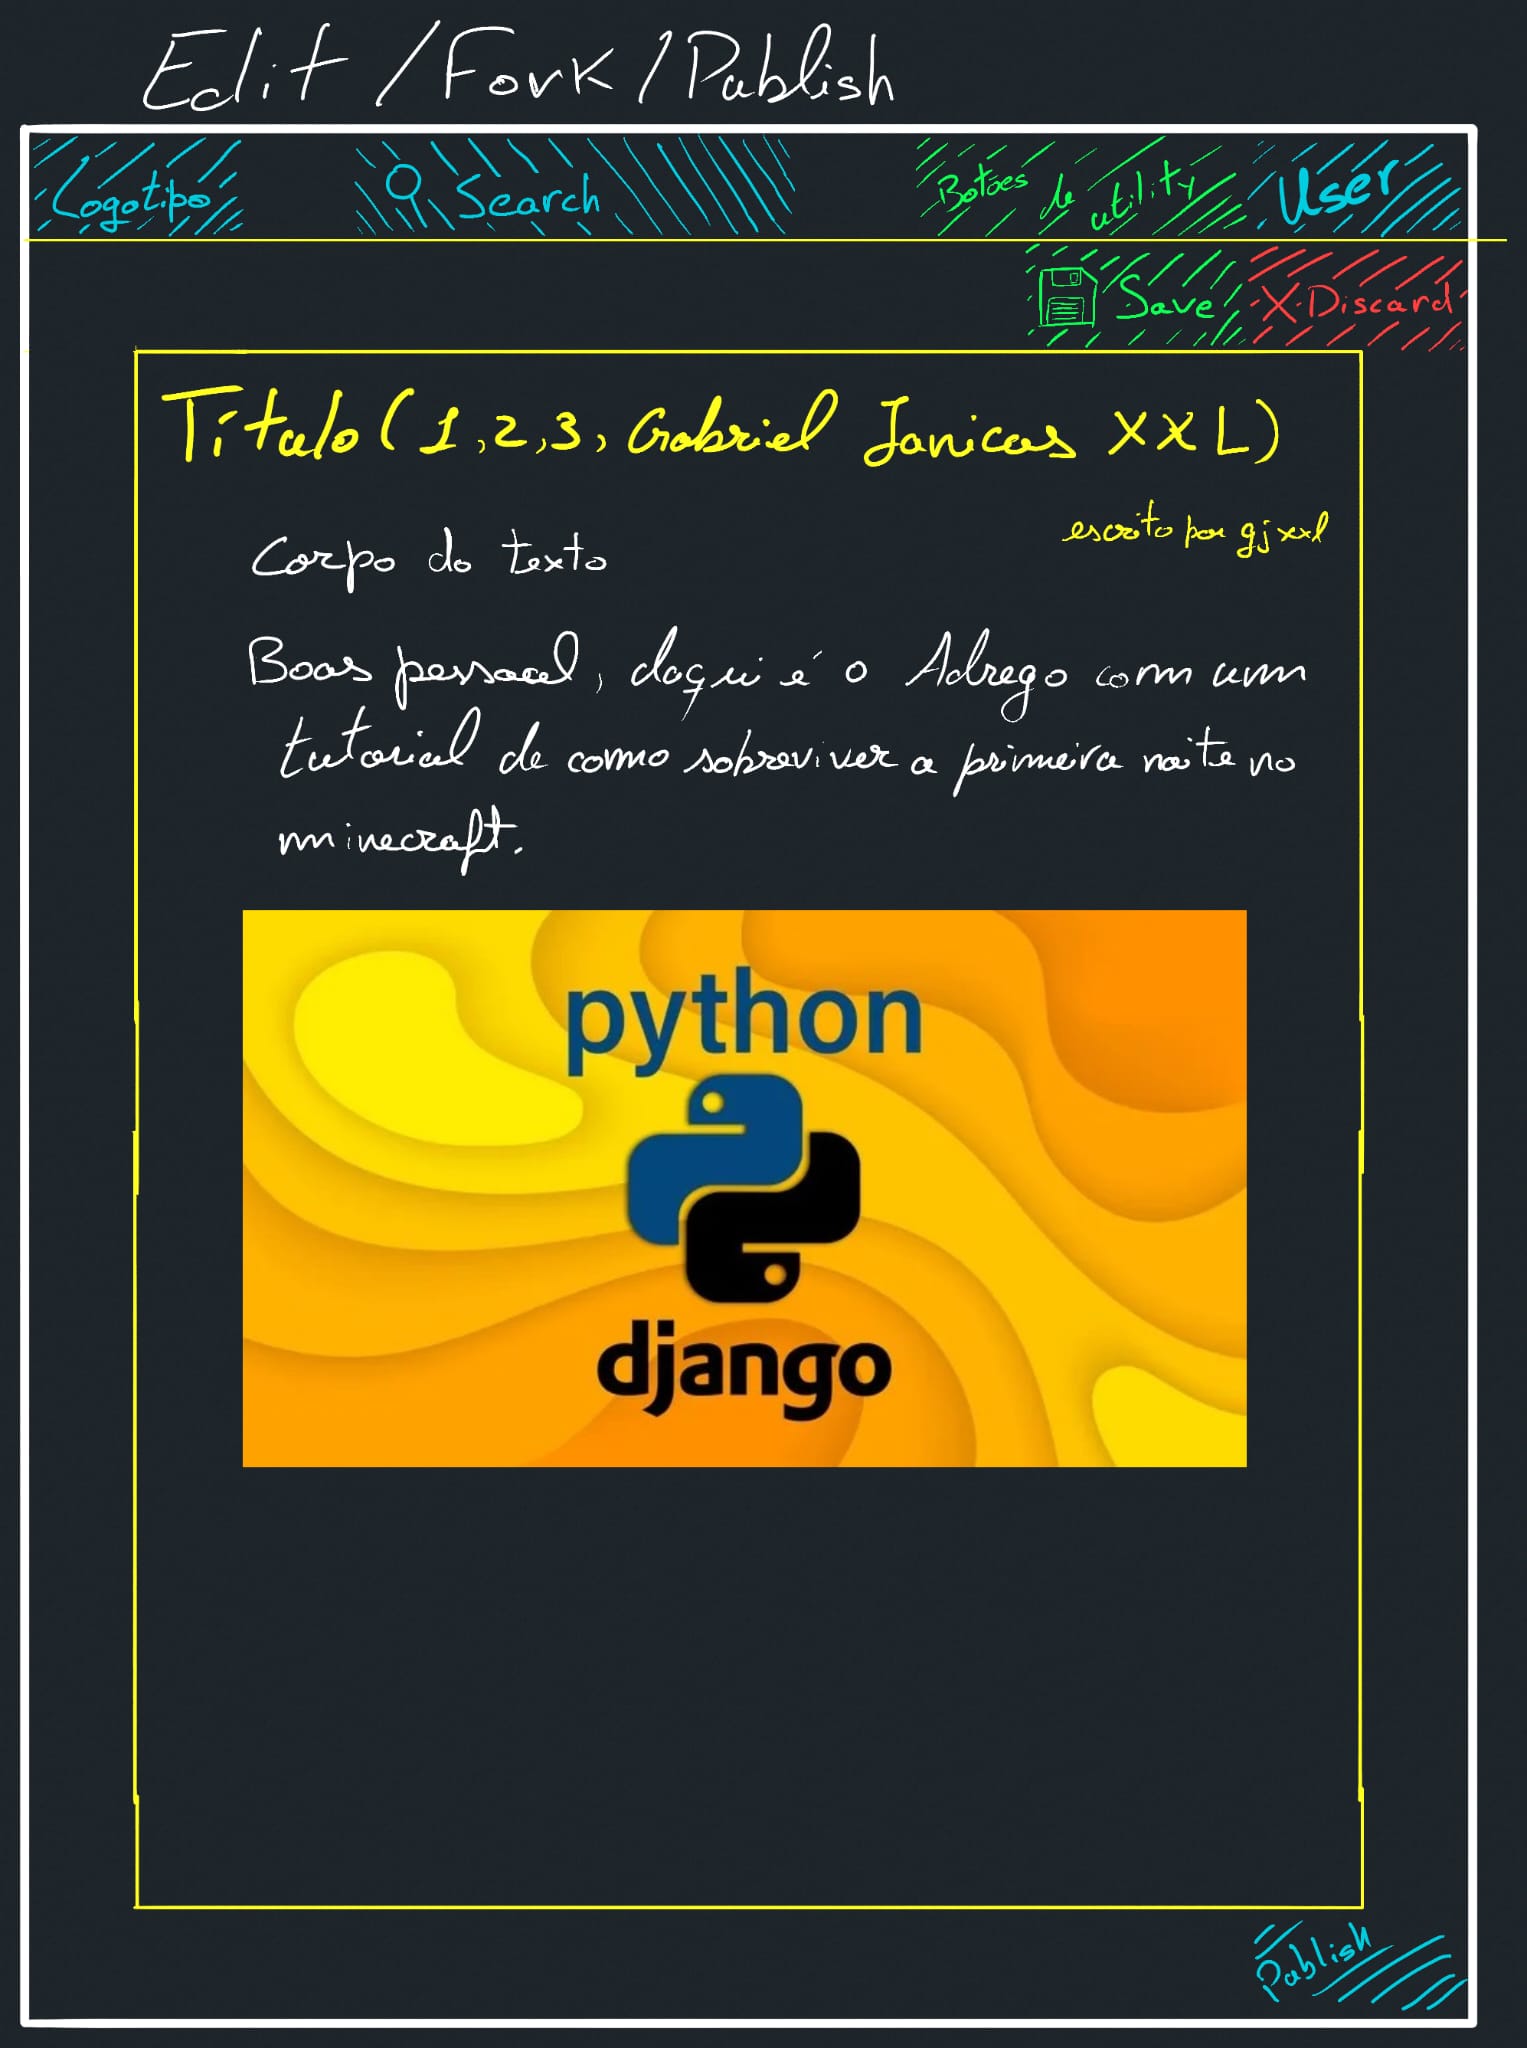 Edit / Fork / Publish
Logotipo
Search
Botões de utility
User
Save
X Discard
Título (1,2,3, Gabriel Janicas XXL)
escrito por gjxxl
Corpo do texto
Boas pessoal, daqui é o Adrego com um
tutorial de como sobreviver a primeira noite no
minecraft.
python
django
Publish